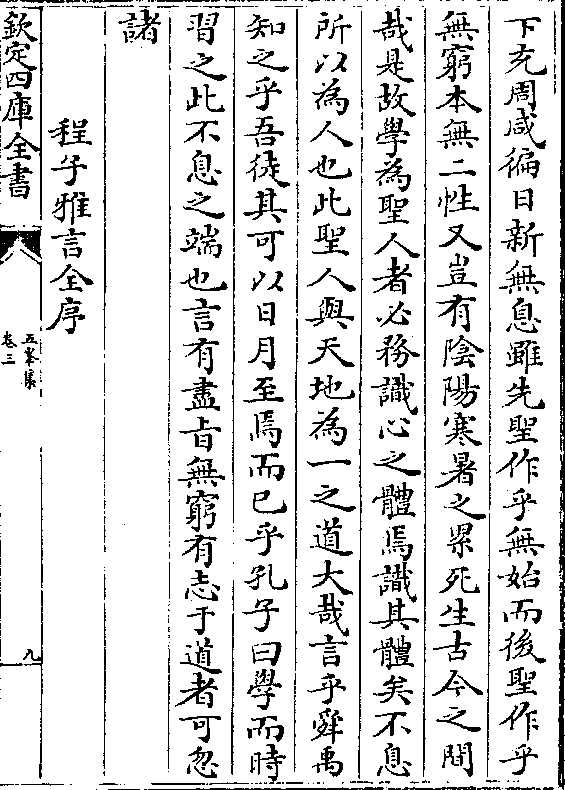 下充周咸徧日新無息雖先聖作乎無始而後聖作乎
無窮本無二性又豈有陰陽寒暑之累死生古今之間
哉是故學為聖人者必務識心之體焉識其體矣不息
所以為人也此聖人與天地為一之道大哉言乎舜禹
知之乎吾徒其可以日月至焉而已乎孔子曰學而時
習之此不息之端也言有盡旨無窮有志于道者可忽
諸
程子雅言全序
欽定四庫全書
五峯集
卷三
九